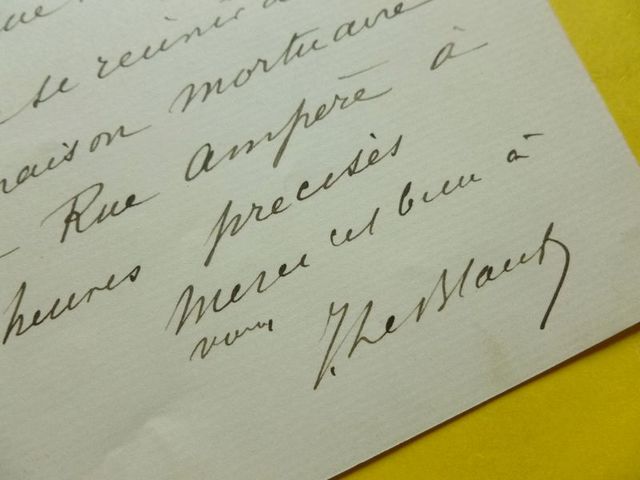 se réunir à
maison mortuaire
Rue Ampère à
heures précises
Merci et bien à
vous
J. Le Blant